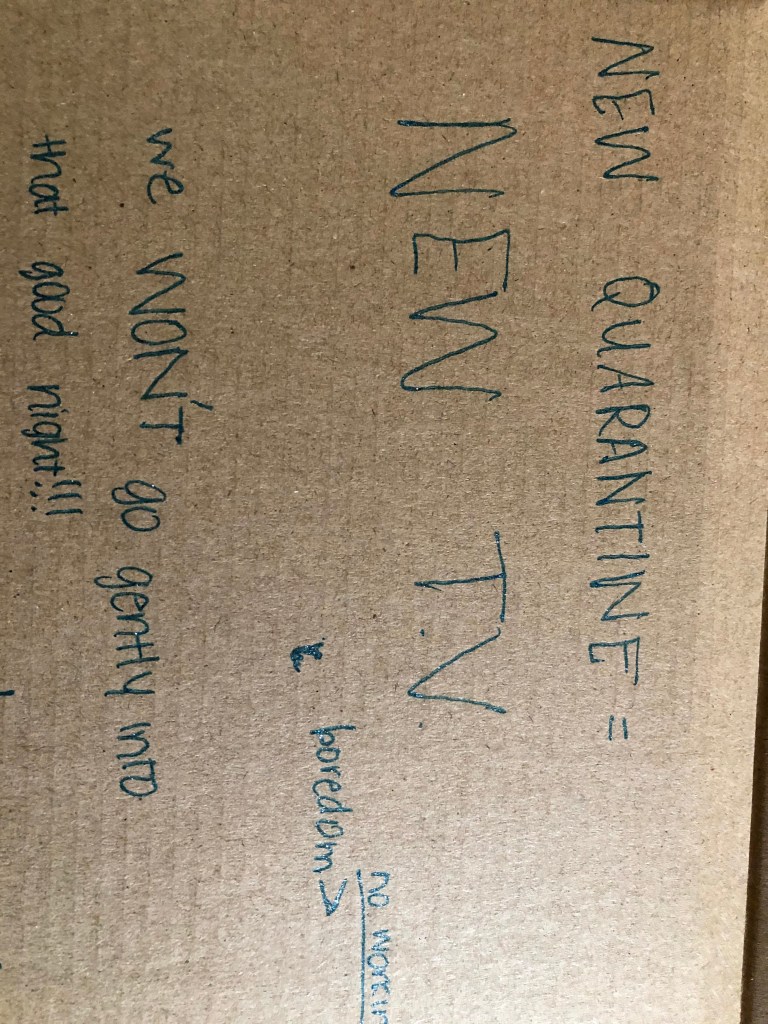 NEW QUARANTINE =
NEW T.V.
no
boredom →
we WON'T go gently into
that good night!!!